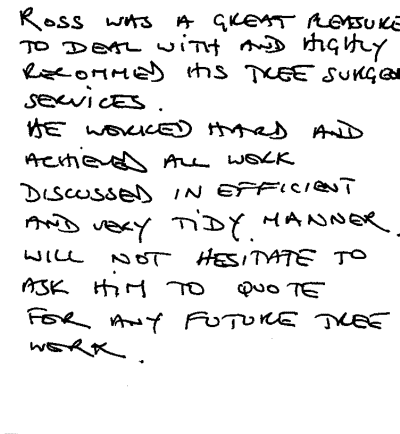 ROSS WAS A GREAT PLEASURE
TO DEAL WITH AND HIGHLY
RECOMMED HIS TREE SURGEO
SERVICES.
HE WORKED HARD AND
ACHIEVED ALL WORK
DISCUSSED IN EFFICIENT
AND VERY TIDY MANNER.
WILL NOT HESITATE TO
ASK HIM TO QUOTE
FOR ANY FUTURE TREE
WORK.